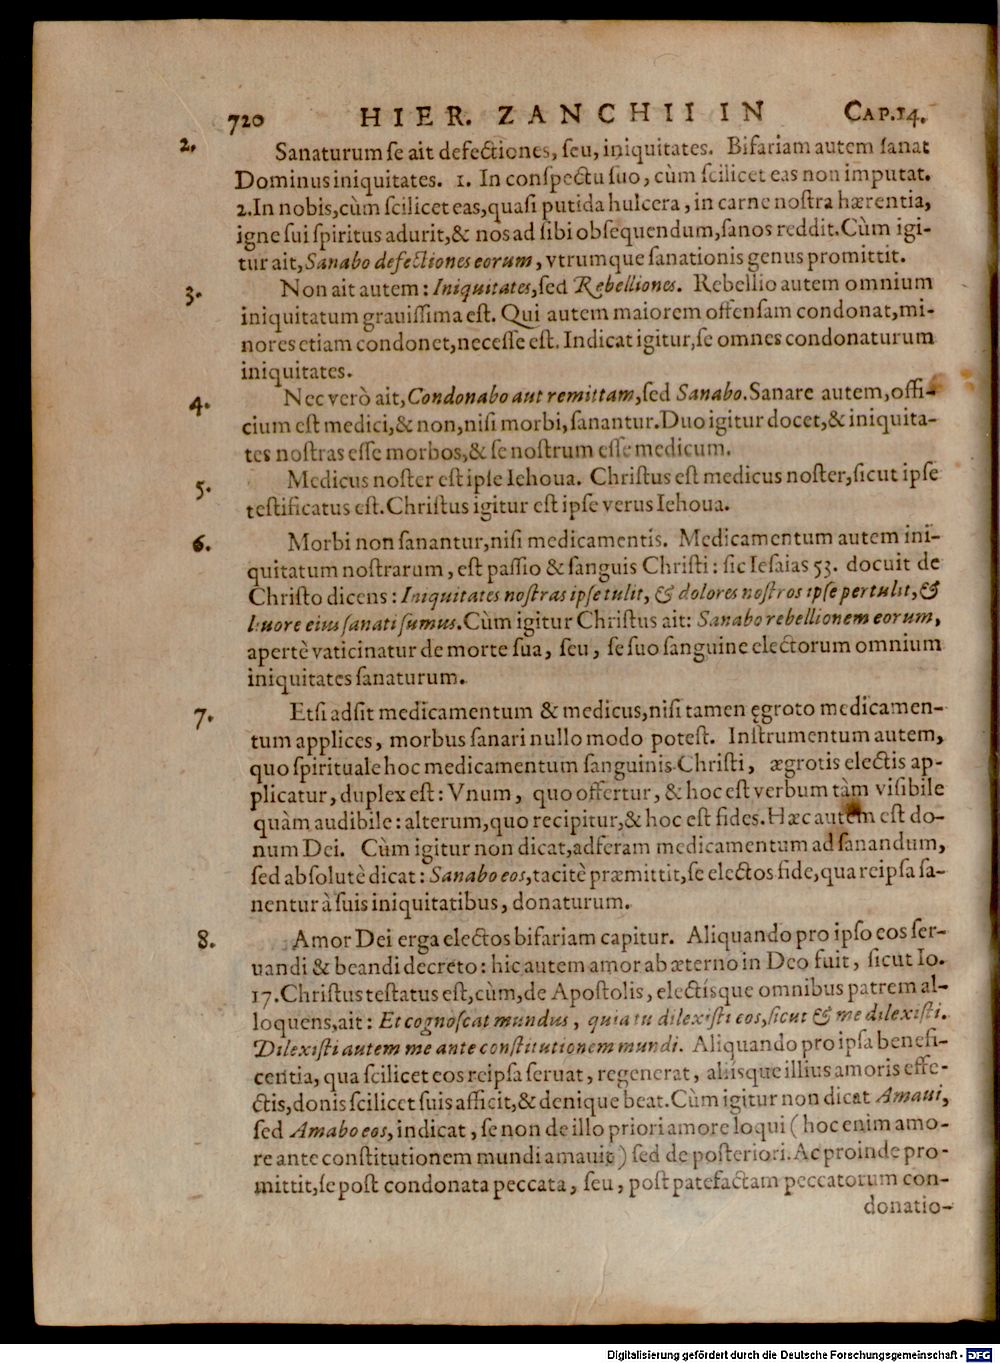 720 HIER. ZANCHII IN CAP.14.
2. Sanaturum se ait defectiones, seu, iniquitates. Bifariam autem sanat
Dominus iniquitates. 1. In conspectu suo, cùm scilicet eas non imputat.
2.In nobis,cùm scilicet eas,quasi putida hulcera, in carne nostra hærentia,
igne sui spiritus adurit,& nos ad sibi obsequendum,sanos reddit.Cùm igi-
tur ait,Sanabo defectiones eorum, vtrumque sanationis genus promittit.
3. Non ait autem: Iniquitates,sed Rebelliones. Rebellio autem omnium
iniquitatum grauissima est. Qui autem maiorem offensam condonat,mi-
nores etiam condonet,necesse est. Indicat igitur,se omnes condonaturum
iniquitates.
4. Nec verò ait,Condonabo aut remittam,sed Sanabo.Sanare autem,offi-
cium est medici,& non,nisi morbi,sanantur.Duo igitur docet,& iniquita-
tes nostras esse morbos,& se nostrum esse medicum.
5. Medicus noster est ipse Iehoua. Christus est medicus noster,sicut ipse
testificatus est.Christus igitur est ipse verus Iehoua.
6. Morbi non sanantur,nisi medicamentis. Medicamentum autem ini-
quitatum nostrarum, est passio & sanguis Christi: sic Iesaias 53. docuit de
Christo dicens: Iniquitates nostras ipse tulit, & dolores nostros ipse pertulit,&
liuore eius sanati sumus.Cùm igitur Christus ait: Sanabo rebellionem eorum,
apertè vaticinatur de morte sua, seu, se suo sanguine electorum omnium
iniquitates sanaturum.
7. Etsi adsit medicamentum & medicus,nisi tamen ęgroto medicamen-
tum applices, morbus sanari nullo modo potest. Instrumentum autem,
quo spirituale hoc medicamentum sanguinis Christi, ægrotis electis ap-
plicatur, duplex est: Vnum, quo offertur, & hoc est verbum tàm visibile
quàm audibile: alterum,quo recipitur,& hoc est fides.Hæc autem est do-
num Dei. Cùm igitur non dicat,adferam medicamentum ad sanandum,
sed absolutè dicat: Sanabo eos,tacitè præmittit,se electos fide,qua reipsa sa-
nentur à suis iniquitatibus, donaturum.
8. Amor Dei erga electos bifariam capitur. Aliquando pro ipso eos ser-
uandi & beandi decreto: hic autem amor ab æterno in Deo fuit, sicut Io.
17.Christus testatus est,cùm,de Apostolis, electísque omnibus patrem al-
loquens,ait: Et cognoscat mundus, quia tu dilexisti eos,sicut & me dilexisti.
Dilexisti autem me ante constitutionem mundi. Aliquando pro ipsa benefi-
centia, qua scilicet eos reipsa seruat, regenerat, aliísque illius amoris effe-
ctis,donis scilicet suis afficit,& denique beat.Cùm igitur non dicat Amaui,
sed Amabo eos, indicat, se non de illo priori amore loqui (hoc enim amo-
re ante constitutionem mundi amauit) sed de posteriori.Ac proinde pro-
mittit,se post condonata peccata, seu, post patefactam peccatorum con-
donatio-
Digitalisierung gefördert durch die Deutsche Forschungsgemeinschaft - DFG